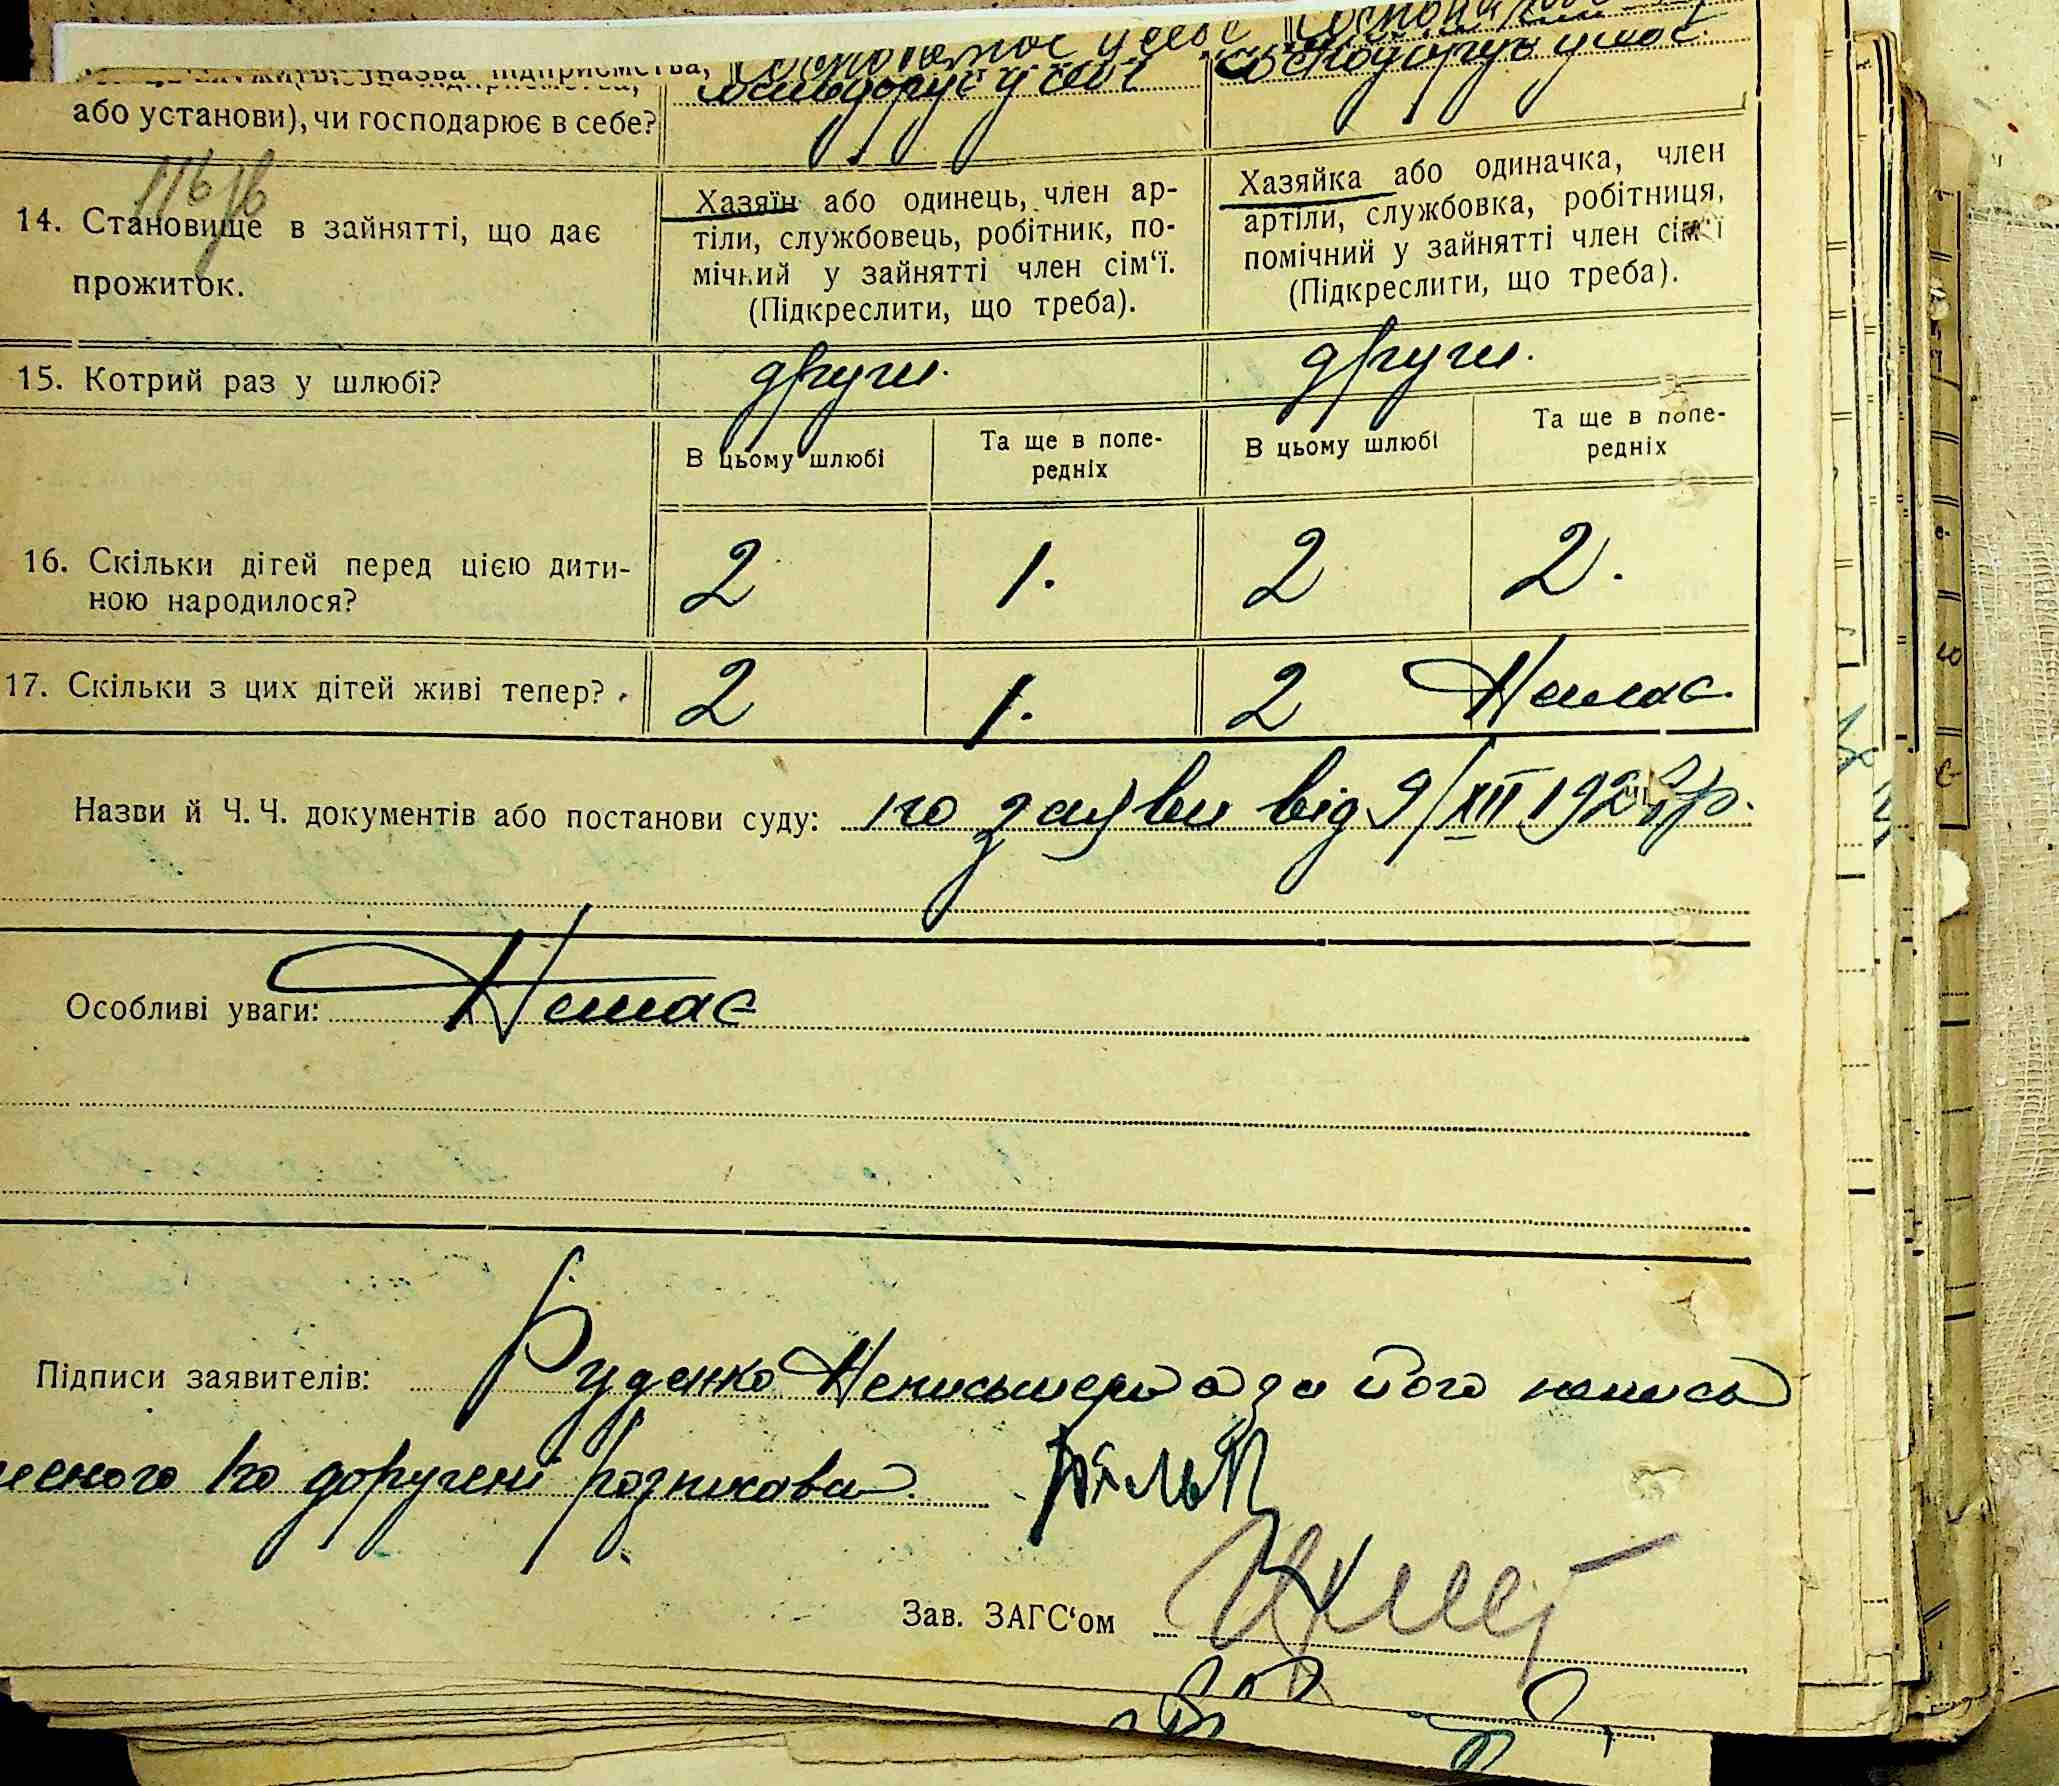 або установи), чи господарює в себе?
14. Становище в зайнятті, що дає
прожиток.
Хазяїн або одинець, член ар-
тіли, службовець, робітник, по-
мічний у зайнятті член сім'ї.
(Підкреслити, що треба).
Хазяйка або одиначка, член
артіли, службовка, робітниця,
помічний у зайнятті член сім'ї
(Підкреслити, що треба).
15. Котрий раз у шлюбі?
други.
други.
В цьому шлюбі
Та ще в попе-
редніх
В цьому шлюбі
Та ще в попе-
редніх
16. Скільки дітей перед цією дити-
ною народилося?
2
1.
2
2.
17. Скільки з цих дітей живі тепер?
2
1.
2
Немає
Назви й Ч. Ч. документів або постанови суду: по заяви від 9/XII 192 р.
Особливі уваги: Немає
Підписи заявителів: Руденко Неписьмений а за його неписьм
еного по доручені розписався
Зав. ЗАГС'ом